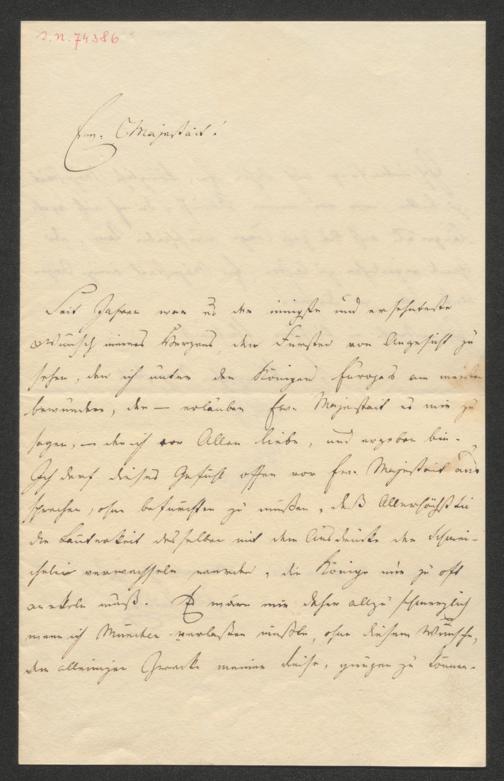 I.N. 74386
Euer Majestät!
Seit Jahren war es der innigste und ersehnteste
Wunsch meines Herzens, den Fürsten von Angesicht zu
sehen, den ich unter den Königen Europas am meisten
bewundere, den — erlauben Euer Majestät es mir zu
sagen, — den ich vor Allen liebe, und ergeben bin.
Ich darf dieses Gefühl offen vor Euer Majestät aus
sprechen, ohne befürchten zu müssen, daß Allerhöchst Sie
die Lauterkeit desselben mit dem Ausdrucke der Schmei-
chelei verwechseln werden, die Könige nur zu oft
anekeln muß. Es wäre mir daher allzu schmerzlich
wenn ich München verlassen müßte, ohne diesem Wunsche,
dem alleinigen Zwecke meiner Reise, genügen zu können.